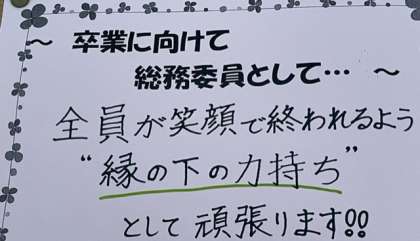 ～ 卒業に向けて
総務委員として… ～
全員が笑顔で終われるよう
“縁の下の力持ち”
として 頑張ります!!